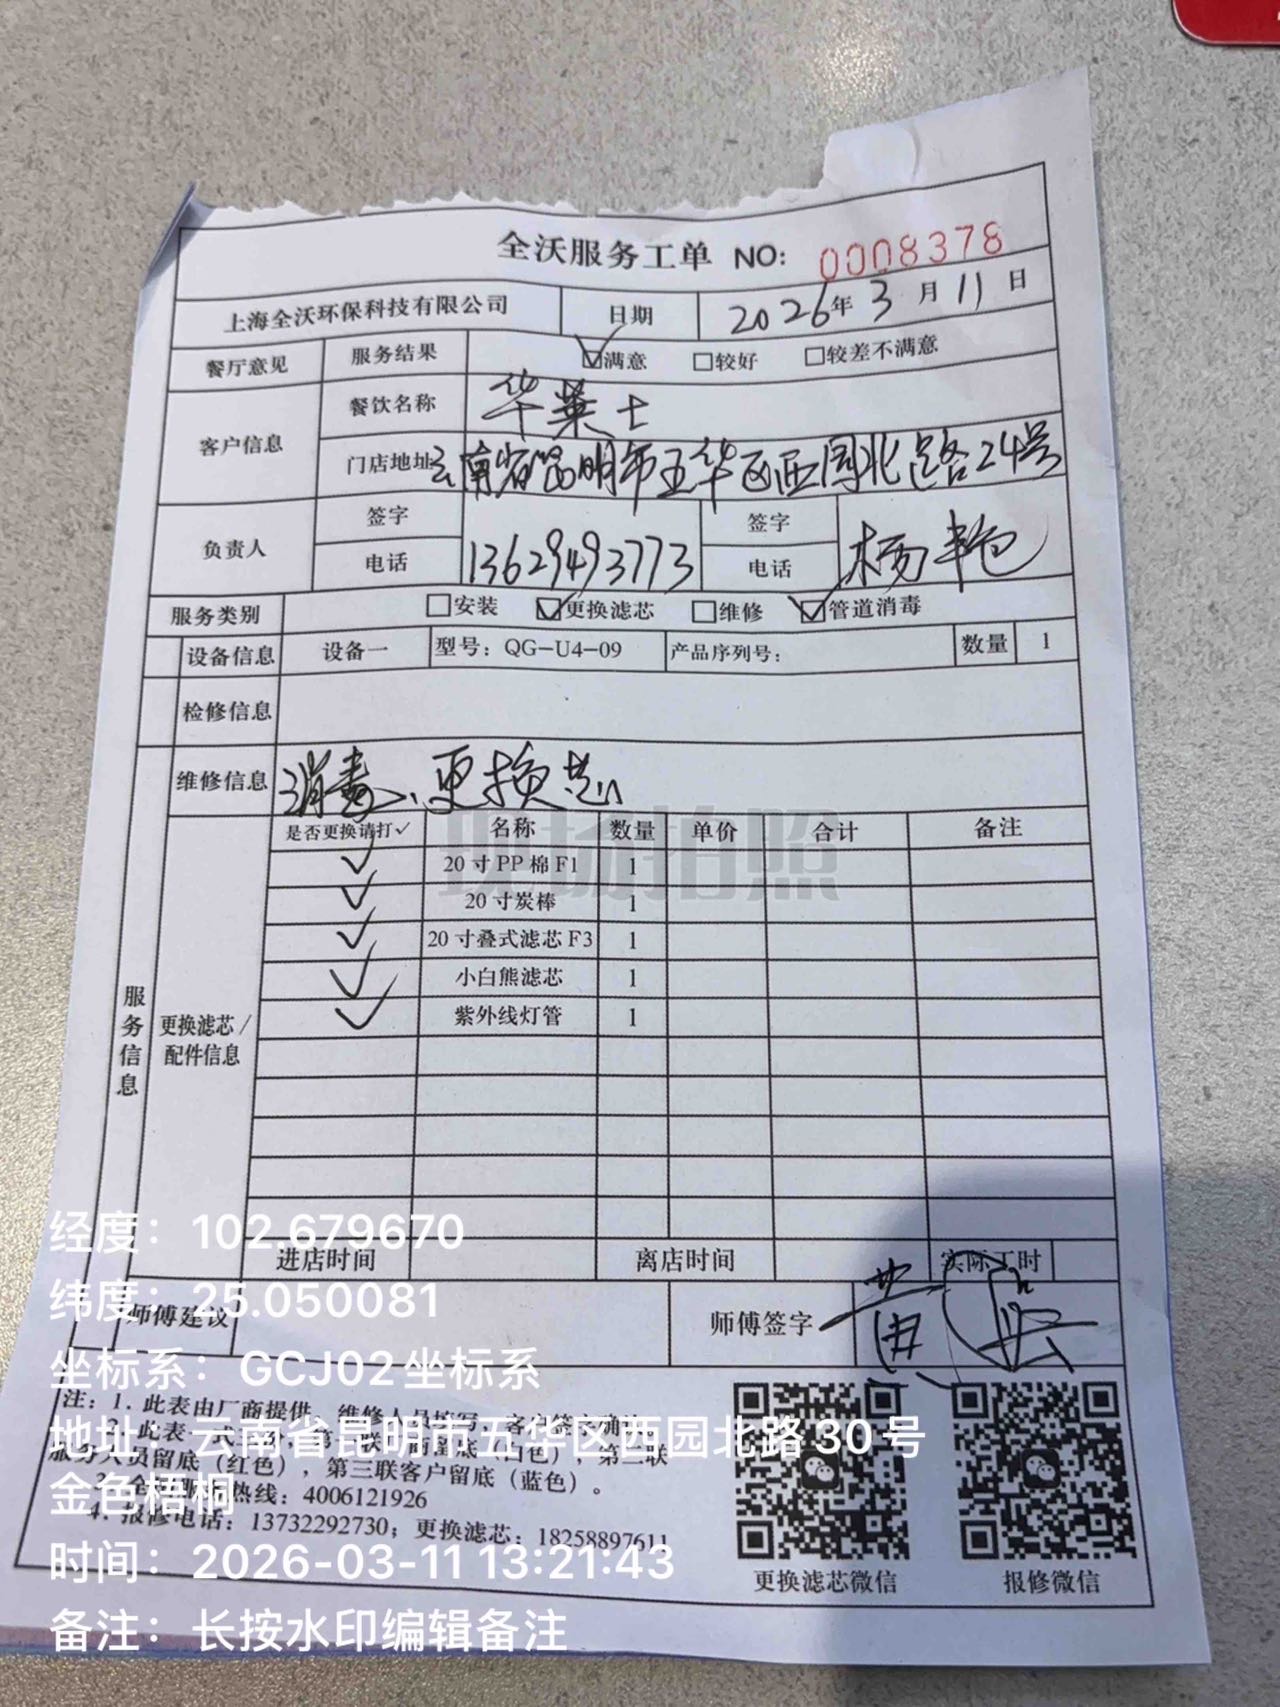 全沃服务工单 NO: 0008378
上海全沃环保科技有限公司 日期 2026年3月11日
餐厅意见 服务结果 ☑满意 □较好 □较差不满意
客户信息 餐饮名称 华莱士
门店地址 云南省昆明市五华区西园北路24号
负责人 签字 签字
电话 13629493773 电话 杨艳
服务类别 □安装 ☑更换滤芯 □维修 ☑管道消毒
设备信息 设备一 型号：QG-U4-09 产品序列号： 数量 1
检修信息
维修信息 消毒、更换芯
服务信息
更换滤芯/配件信息
是否更换请打✓ 名称 数量 单价 合计 备注
✓ 20寸PP棉F1 1
✓ 20寸炭棒 1
✓ 20寸叠式滤芯F3 1
✓ 小白熊滤芯 1
✓ 紫外线灯管 1
现场拍照
进店时间 离店时间 实际工时
师傅建议 师傅签字
注：1. 此表由厂商提供，维修人员填写，客户签字确认
此表一式 第一联 留底（白色），第二联
服务人员留底（红色），第三联客户留底（蓝色）。
热线：4006121926
4. 报修电话：13732292730；更换滤芯：18258897611
更换滤芯微信 报修微信
经度：102.679670
纬度：25.050081
坐标系：GCJ02坐标系
地址：云南省昆明市五华区西园北路30号
金色梧桐
时间：2026-03-11 13:21:43
备注：长按水印编辑备注